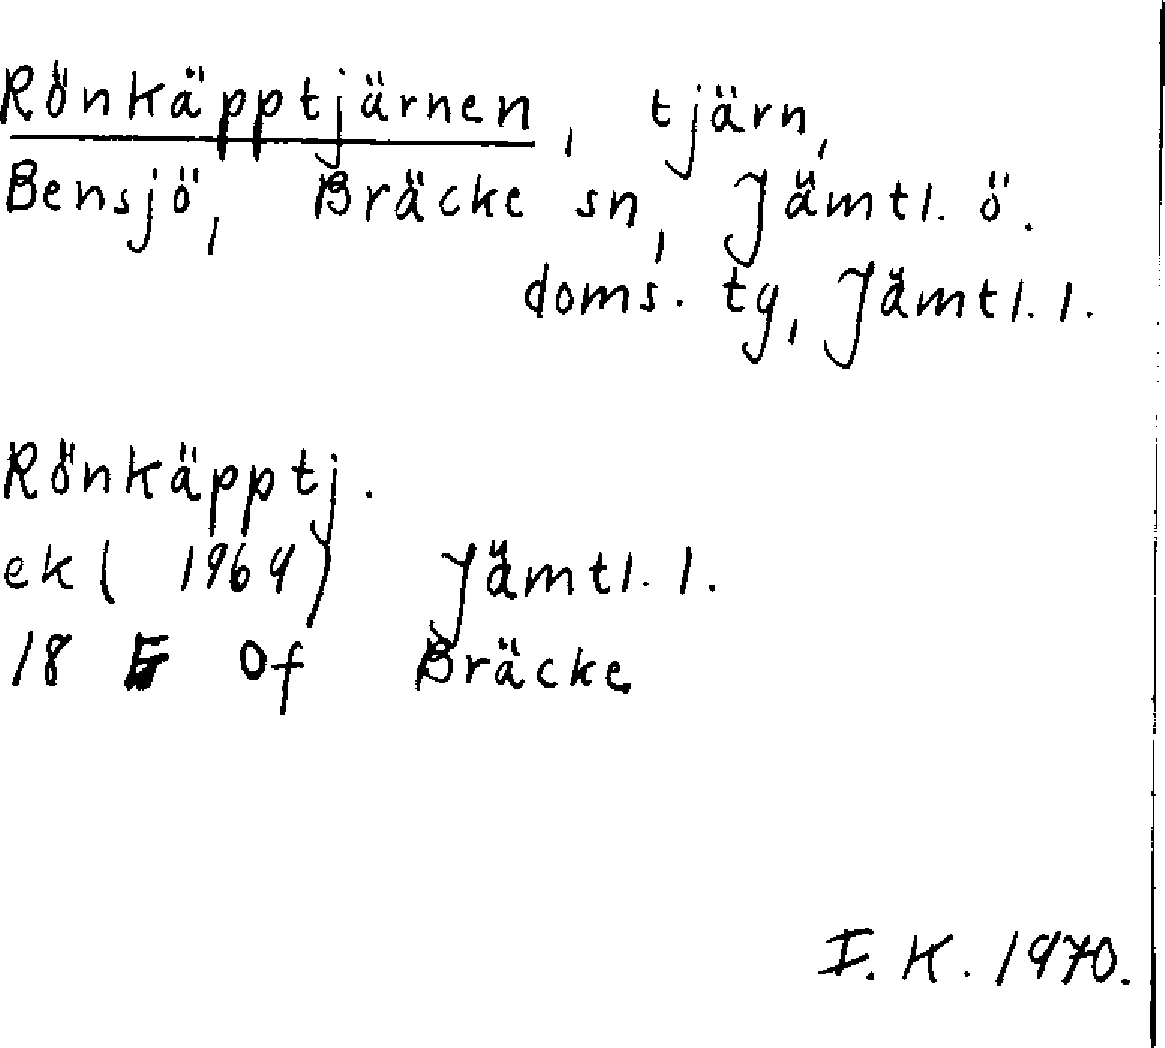 Rönkäpptjärnen, tjärn,
Bensjö, Bräcke sn, Jämtl. ö.
doms. tg, Jämtl. l.
Rönkäpptj.
ek ( 1964) Jämtl. l.
18 E 0f Bräcke
I. K. 1970.